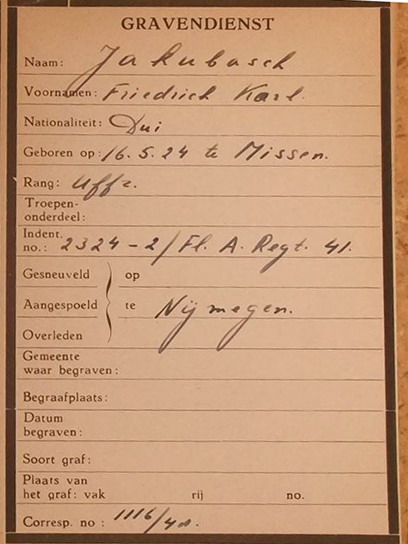 GRAVENDIENST
Naam: Jakubasch
Voornamen: Friedrich Karl.
Nationaliteit: Dui
Geboren op: 16.5.24 te Missen.
Rang: Uffz.
Troepen-
onderdeel:
Indent.
no.: 2324-2/Fl. A. Regt. 41.
Gesneuveld op
Aangespoeld te Nijmegen.
Overleden
Gemeente
waar begraven:
Begraafplaats:
Datum
begraven:
Soort graf:
Plaats van
het graf: vak rij no.
Corresp. no: 1116/